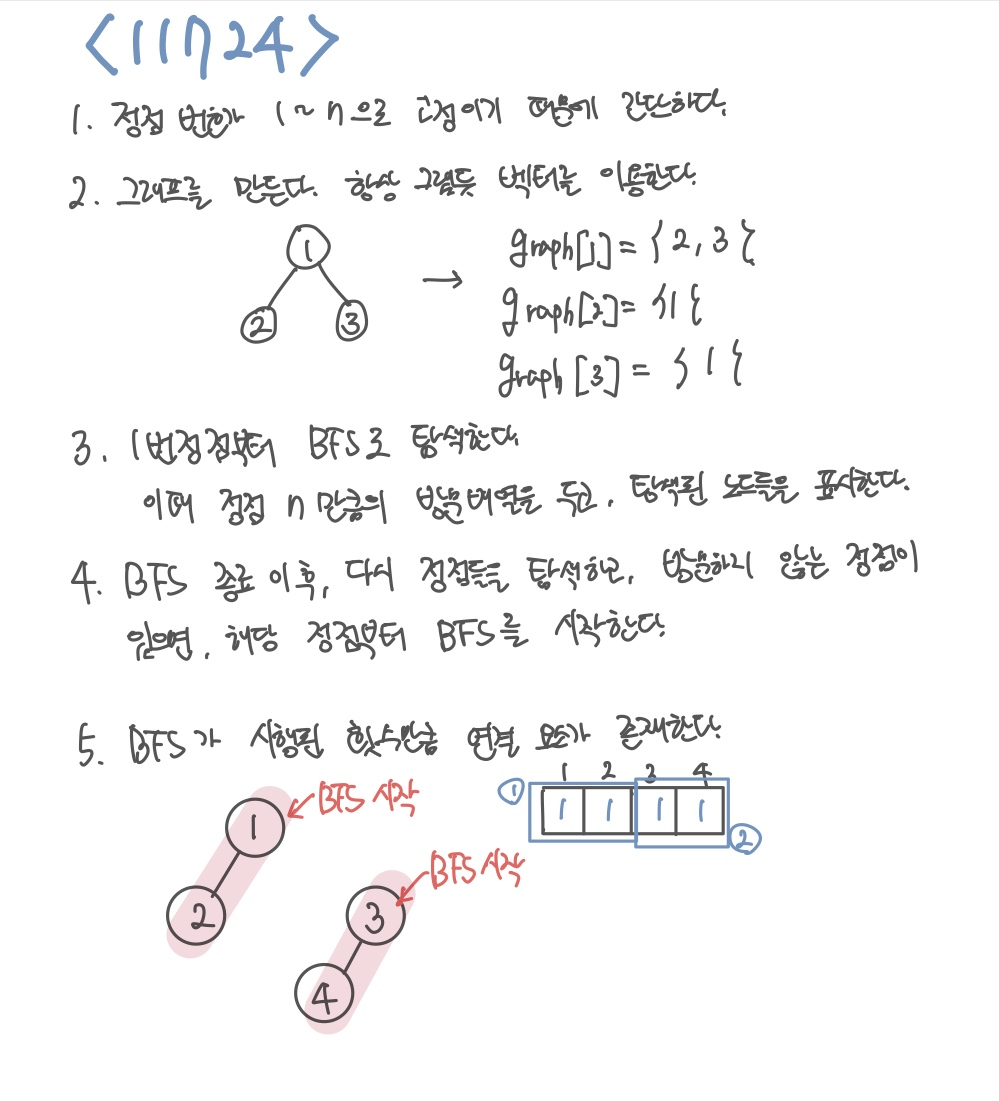 <11724>
1. 정점 번호가 1~n으로 고정이기 때문에 간단하다.
2. 그래프를 만든다. 항상 그렇듯 벡터를 이용한다.
1
2 3
→
graph[1] = {2, 3}
graph[2] = {1}
graph[3] = {1}
3. 1번정점부터 BFS로 탐색한다.
이때 정점 n 만큼의 방문배열을 두고, 탐색된 노드들을 표시한다.
4. BFS 종료 이후, 다시 정점들을 탐색하고, 방문하지 않는 정점이
있으면, 해당 정점부터 BFS를 시작한다.
5. BFS가 시행된 횟수만큼 연결 요소가 존재한다.
1 2 3 4
① 1 1 1 1 ②
BFS 시작
1
2
BFS 시작
3
4